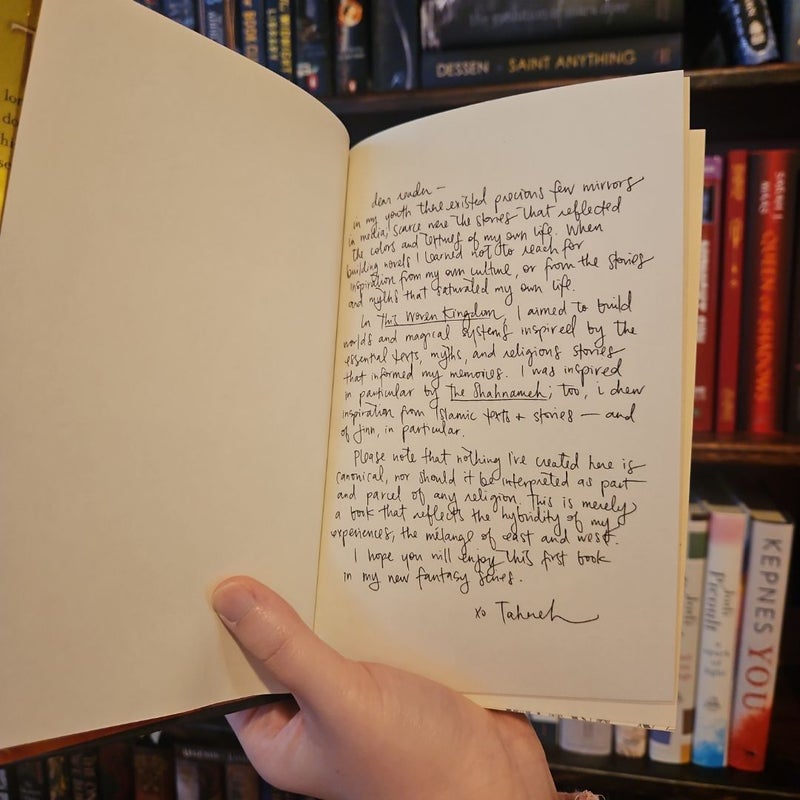 DESSEN SAINT ANYTHING
MIDNIGHT
LIBRARY
dear reader —
in my youth there existed precious few mirrors
in media; scarce were the stories that reflected
the colors and textures of my own life. When
building novels I learned not to reach for
inspiration from my own culture, or from the stories
and myths that saturated my own life.
In This Woven Kingdom, I aimed to build
worlds and magical systems inspired by the
essential texts, myths, and religious stories
that informed my memories. I was inspired
in particular by The Shahnameh; too, i drew
inspiration from Islamic texts + stories — and
of Jinn, in particular.
Please note that nothing I've created here is
canonical, nor should it be interpreted as part
and parcel of any religion. This is merely
a book that reflects the hybridity of my
experiences, the mélange of east and west.
I hope you will enjoy this first book
in my new fantasy series.
xo Tahereh
QUEEN OF SHADOWS
Jodi
Picoult
KEPNES YOU